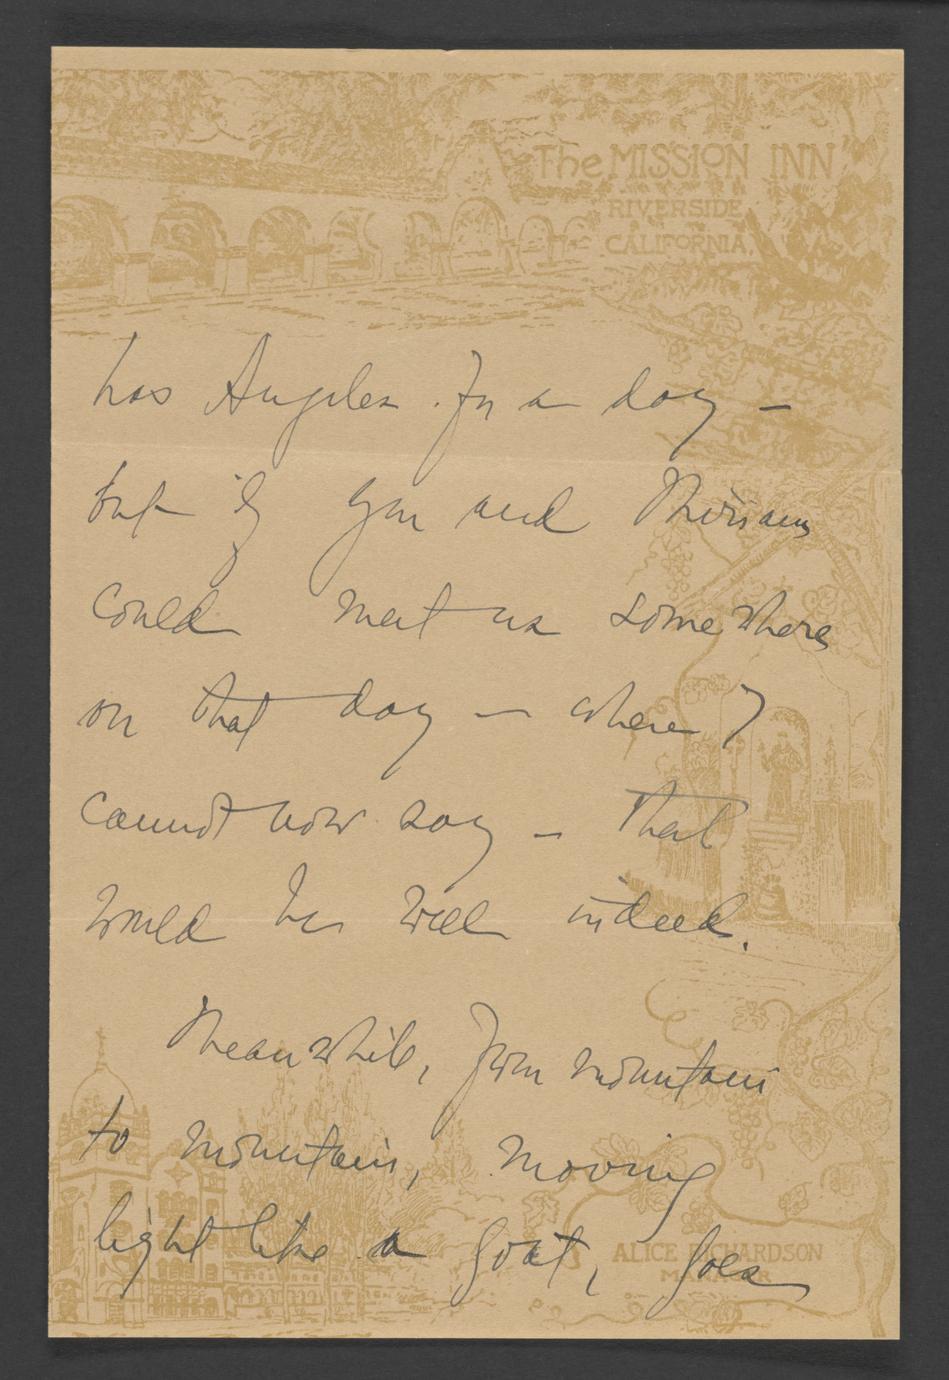 The MISSION INN
RIVERSIDE
CALIFORNIA.
Los Angeles for a day –
but if you and Miriam
could meet us somewhere
on that day – where I
cannot now say – that
would be well indeed.
Meanwhile, from mountain
to mountain, moving
light like a goat, goes
ALICE RICHARDSON
MANAGER